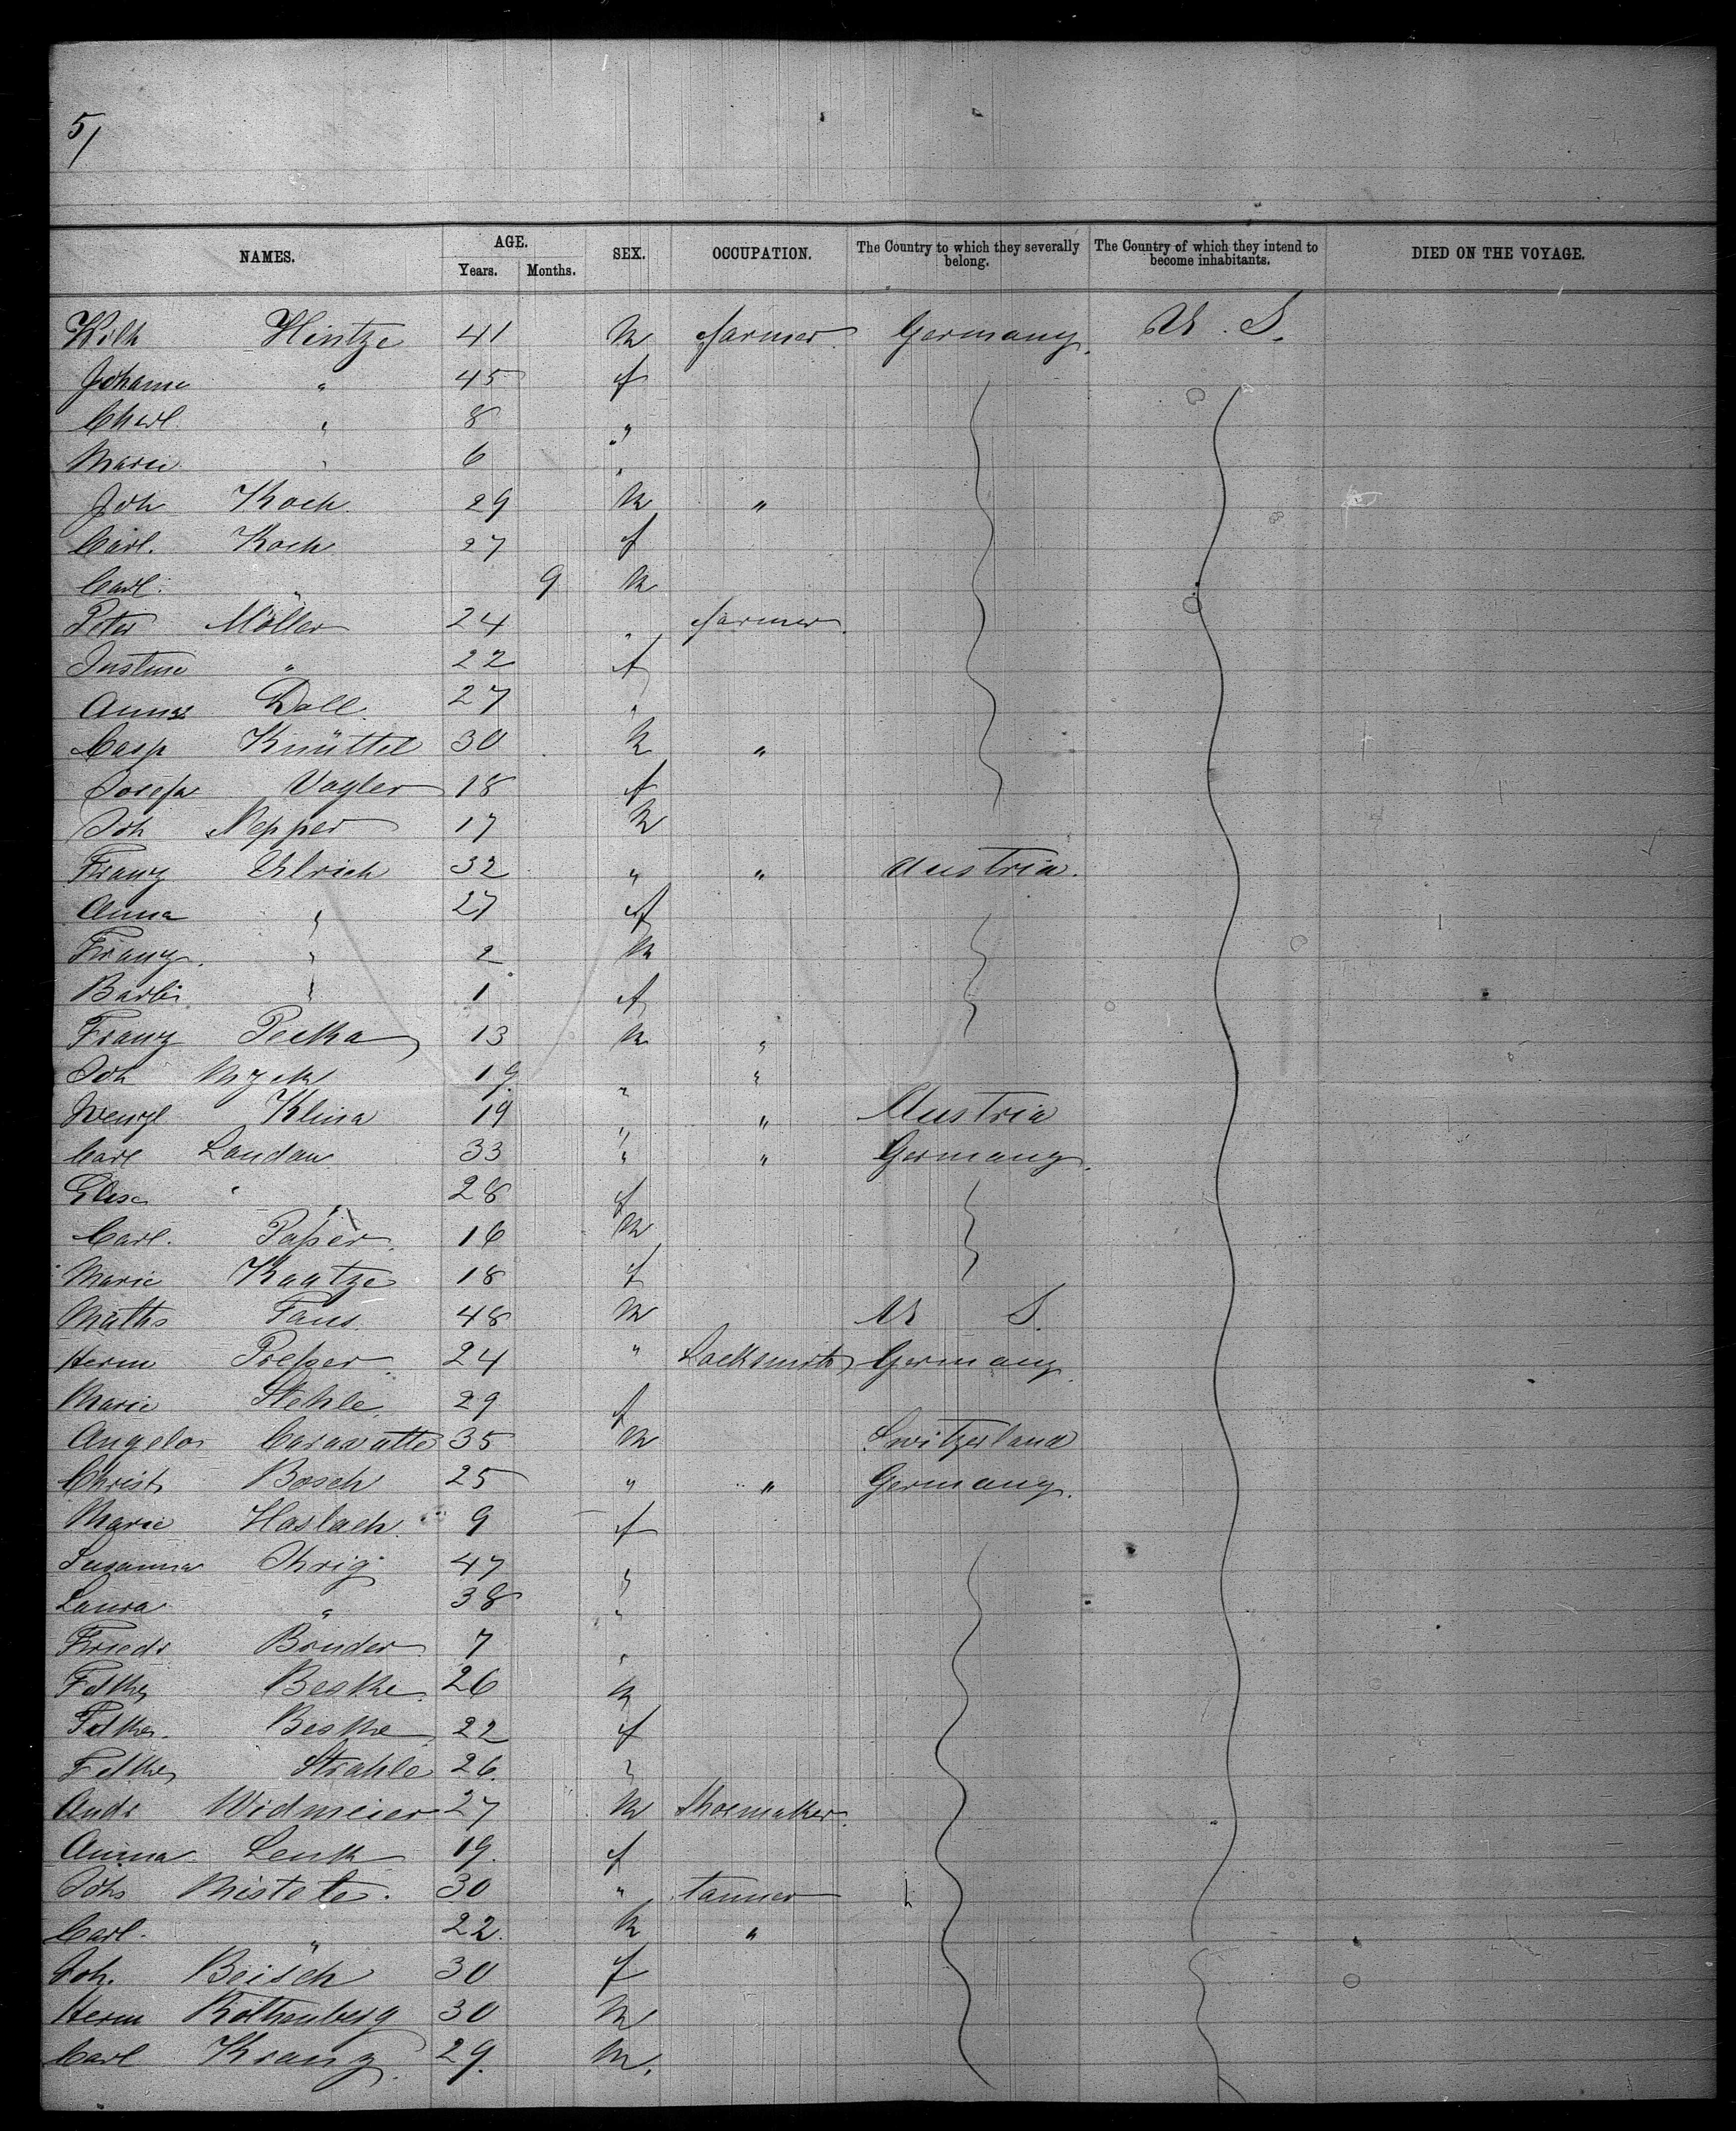 5/
NAMES. AGE. SEX. OCCUPATION. The Country to which they severally belong. The Country of which they intend to become inhabitants. DIED ON THE VOYAGE.
Years. Months.
Wilh Hintze 41 m farmer Germany. U. S.
Johanne " 45 f
" 8 "
Marie " 6 "
Joh Koch 29 m "
Carl. Koch 27 f
Carl. " 9 m
Peter Möller 24 " farmer
Justine " 22 f
Anna Doll 27 "
Casp Knüttel 30 m "
Josefa Vogler 18 f
Joh Nepper 17 m
Franz Ulrich 32 " " Austria.
Anna " 27 f
Franz " 2 m
Barb. " 1 f
Franz Pecka 13 m "
Joh 19 " "
Wenzl Klima 19 " " Austria
Carl Landau 33 " " Germany.
Elise " 28 f
Carl. Paßer 16 m
Marie Kaatze 18 f
Maths Faus 48 m U S.
Herm Preßer 24 " Locksmith Germany
Marie Stehle 29 f
Angelo 35 m Switzerland
Christ Bosch 25 " " Germany.
Marie Haslach 9 f
Susanna Ihrig 47 "
Laura " 38 "
Friedr Bruder 7 "
Beske 26 m
Beske 22 f
Strahle 26 "
Andr Widmeier 27 m Shoemaker
Anna Lenk 19 f
Johs Mistele 30 " tanner
Carl. " 22 m "
Joh. Beisch 30 f
Herm Rothenberg 30 m
Carl Kranz 29. m.